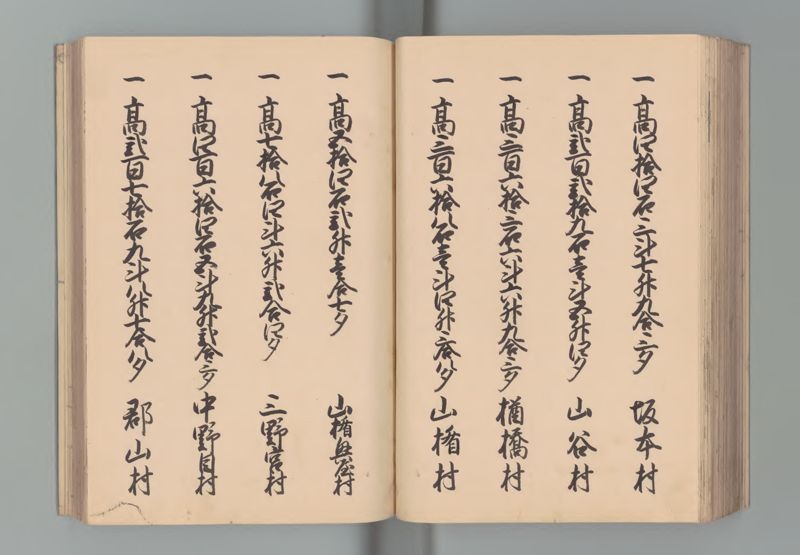 一 高四拾四石三斗七升九合三夕 坂本村
一 高弐百弐拾九石壱斗五升四夕 山谷村
一 高三百六拾三石六斗六升九合三夕 楢橋村
一 高三百六拾八石壱斗四升三合八夕 山楯村
一 高五拾四石弐升壱合七夕 山楯興屋村
一 高七拾八石四斗六升弐合四夕 三野宮村
一 高四百六拾四石五斗九升弐合三夕 中野目村
一 高弐百七拾石九斗八升七合八夕 郡山村